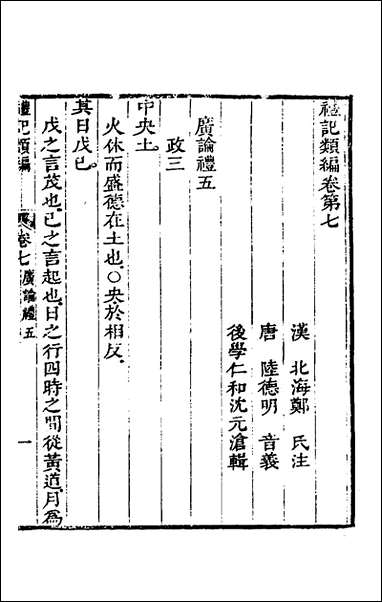 禮記類編卷第七
漢　北海鄭　氏注
唐　陸德明　音義
後學仁和沈元滄輯
廣論禮五
政三
中央土
火休而盛德在土也○央於相反
其日戊己
戊之言茂也己之言起也日之行四時之間從黃道月為
禮記類編　卷七廣論禮五　一